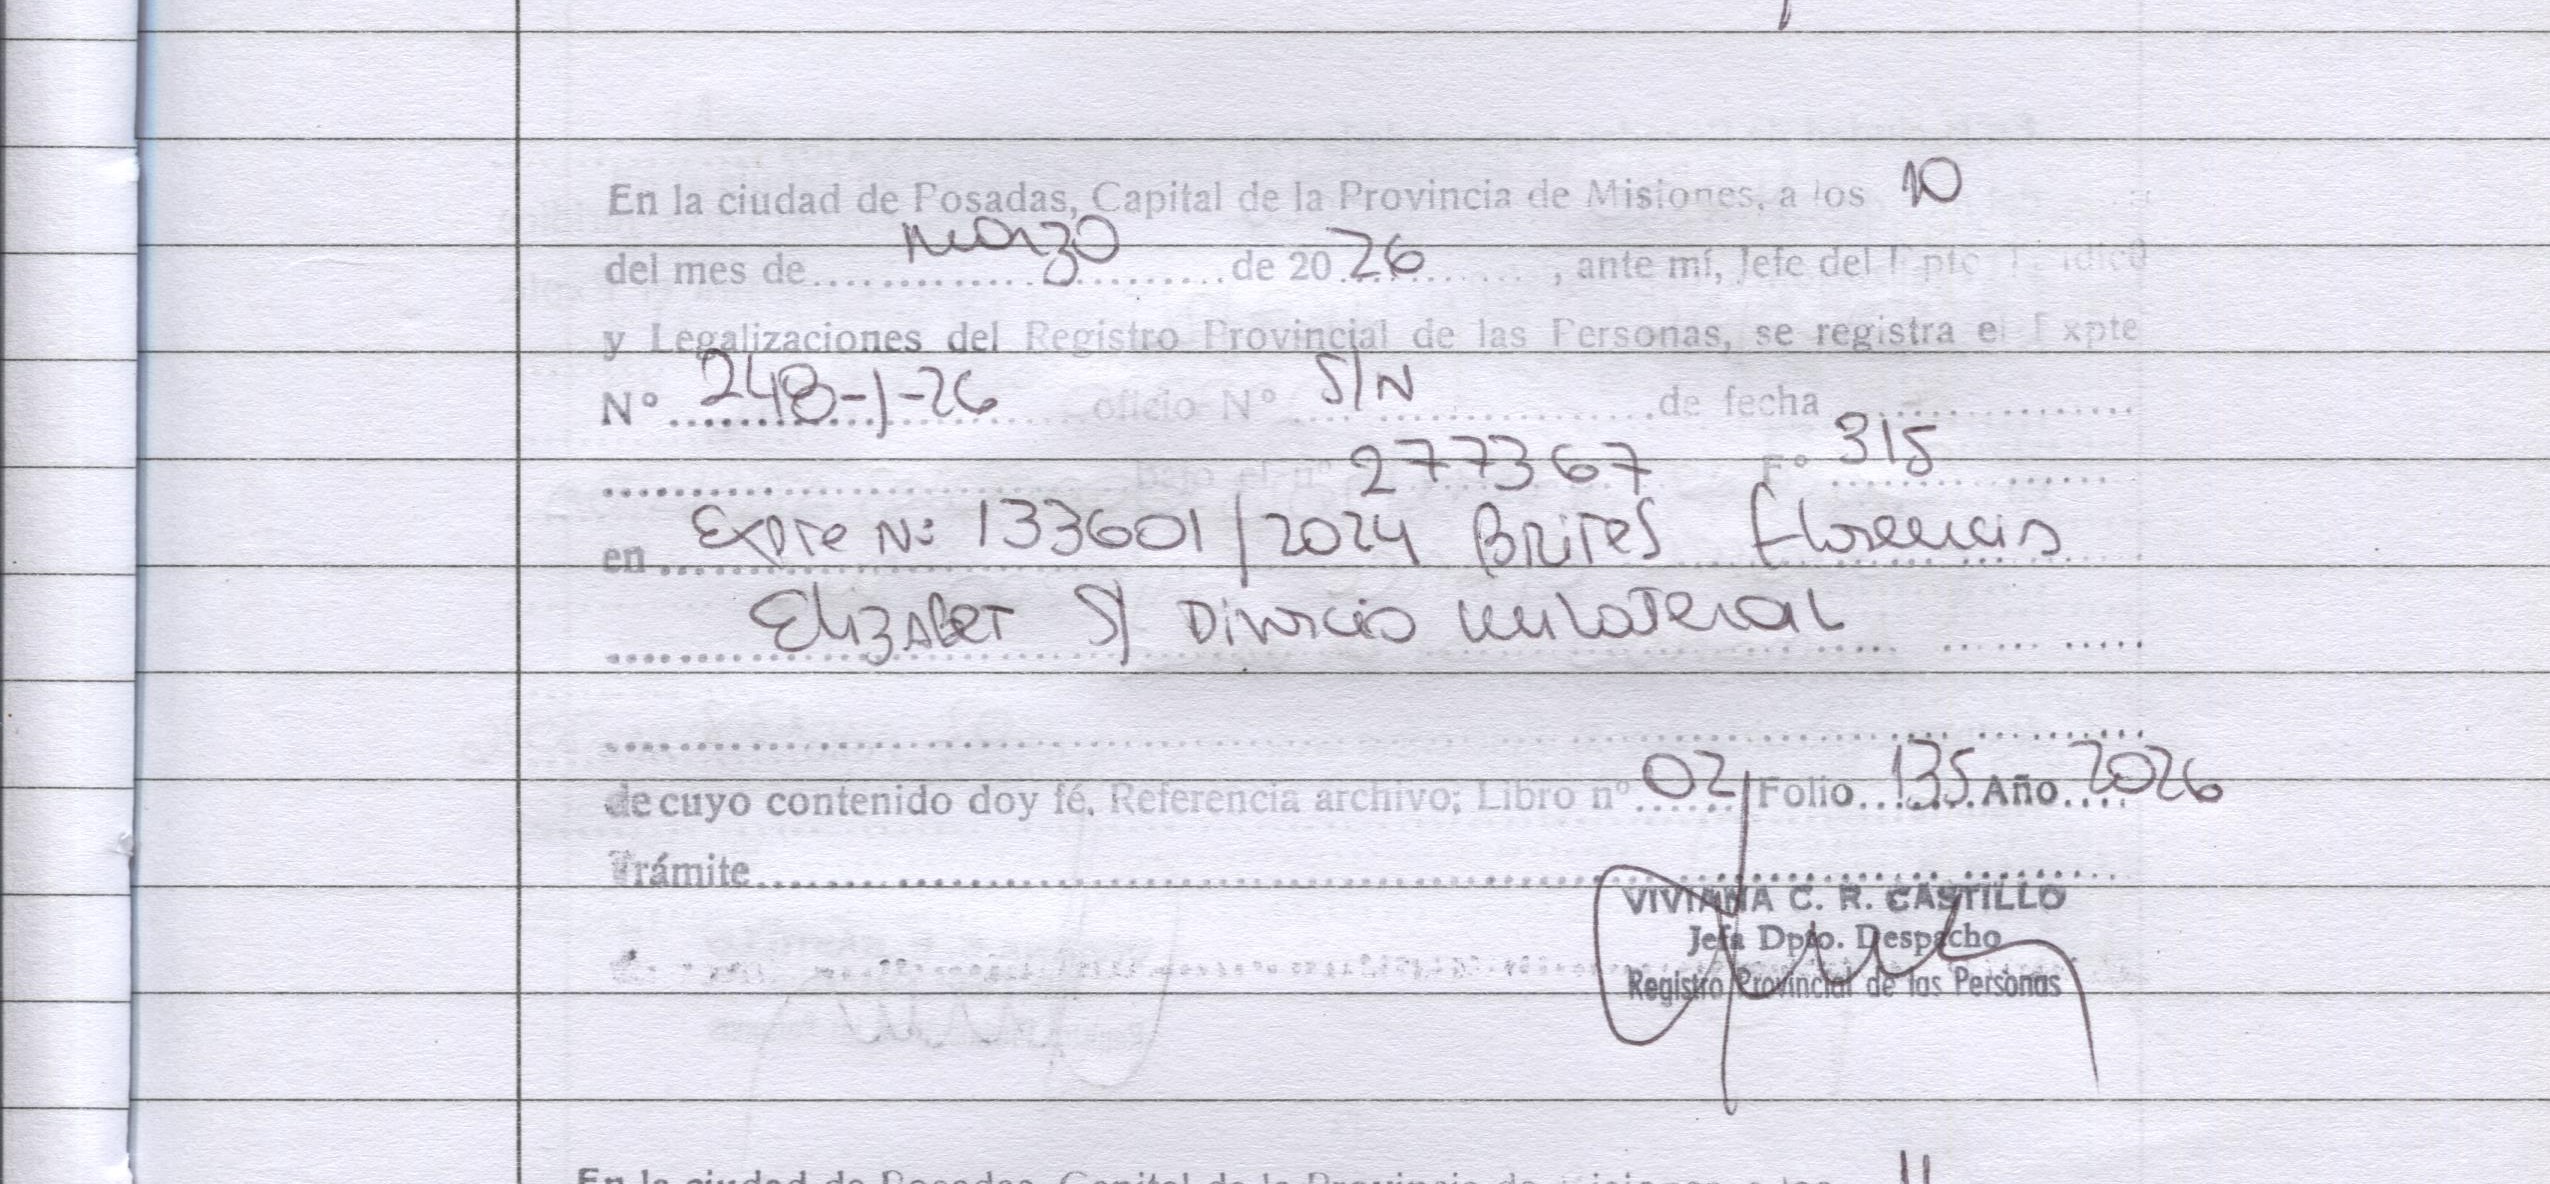 En la ciudad de Posadas, Capital de la Provincia de Misiones, a los 10
del mes de marzo de 2026, ante mí, Jefe del Dpto. Jurídico
y Legalizaciones del Registro Provincial de las Personas, se registra el Expte
Nº 248-J-26 oficio Nº S/N de fecha
bajo el nº 277367 Fº 315
en Expte Nº 133601/2024 Brites Florencia
Elizabet S/ Divorcio unilateral
de cuyo contenido doy fé. Referencia archivo: Libro nº 02 Folio 135 Año 2026
Trámite
VIVIANA C. R. CASTILLO
Jefa Dpto. Despacho
Registro Provincial de las Personas
En la ciudad de Posadas, Capital de la Provincia de Misiones, a los 11